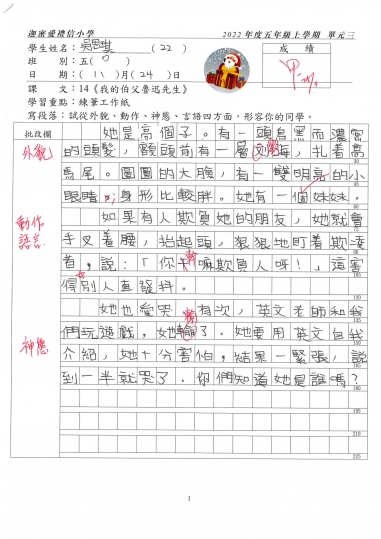 迦密愛禮信小學 2022 年度五年級上學期 單元三
學生姓名：吳思琪 (22) 成績
班別：五
日期：(11)月(24)日
課文：14《我的伯父魯迅先生》
學習重點：練筆工作紙
寫段落：試從外貌、動作、神態、言語四方面，形容你的同學。
批改欄
外貌
她是高個子。有一頭烏黑而濃密
的頭髮，額頭前有一層海，扎着高
馬尾。圓圓的大臉，有一雙明亮的小
眼睛，身形比較胖。她有一個妹妹。
動作
語言
如果有人欺負她的朋友，她就會
手叉着腰，抬起頭，狠狠地盯着欺凌
者，說：「你幹嘛欺負人呀！」這害
得別人直發抖。
她也愛哭。有次，英文老師和我
們玩遊戲，她輸了。她要用英文自我
神態
介紹，她十分害怕，結果一緊張，說
到一半就哭了。你們知道她是誰嗎？
15
30
45
60
75
90
105
120
135
150
165
180
195
210
225
1